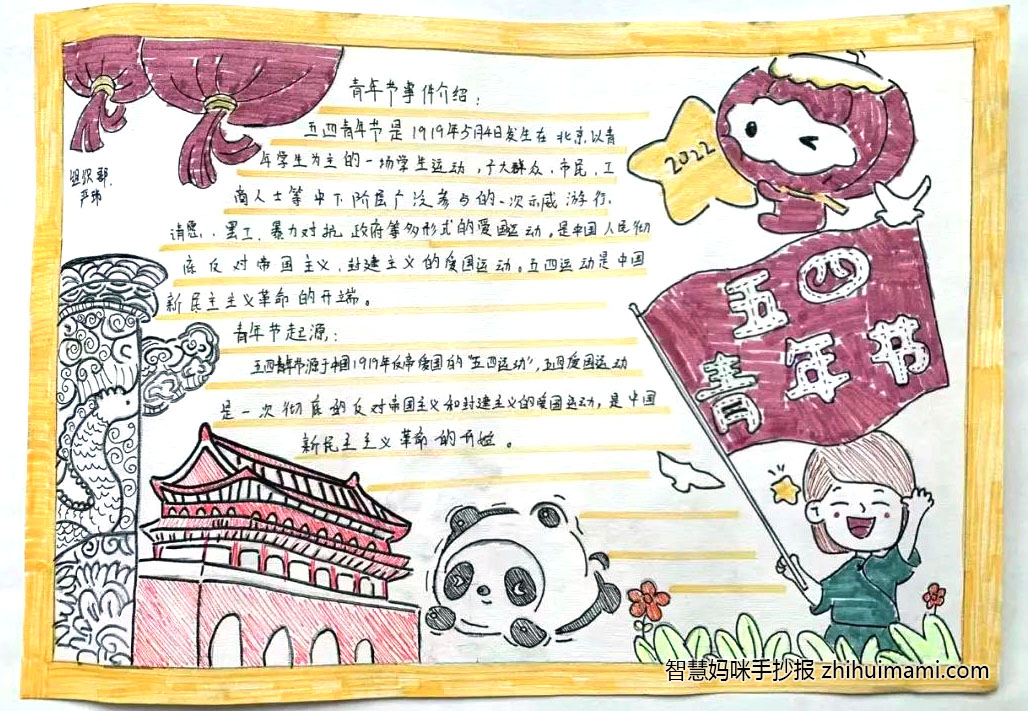 青年节事件介绍：
五四青年节是1919年5月4日发生在北京以青
年学生为主的一场学生运动，广大群众、市民、工
商人士等中下阶层广泛参与的一次示威游行、
请愿、罢工、暴力对抗政府等多形式的爱国运动。是中国人民彻
底反对帝国主义、封建主义的爱国运动。五四运动是中国
新民主主义革命的开端。
青年节起源：
五四青年节源于中国1919年反帝爱国的"五四运动"，五四爱国运动
是一次彻底的反对帝国主义和封建主义的爱国运动，是中国
新民主主义革命的开始。
组织部
2022
五四
青年节
智慧妈咪手抄报 zhihuimami.com